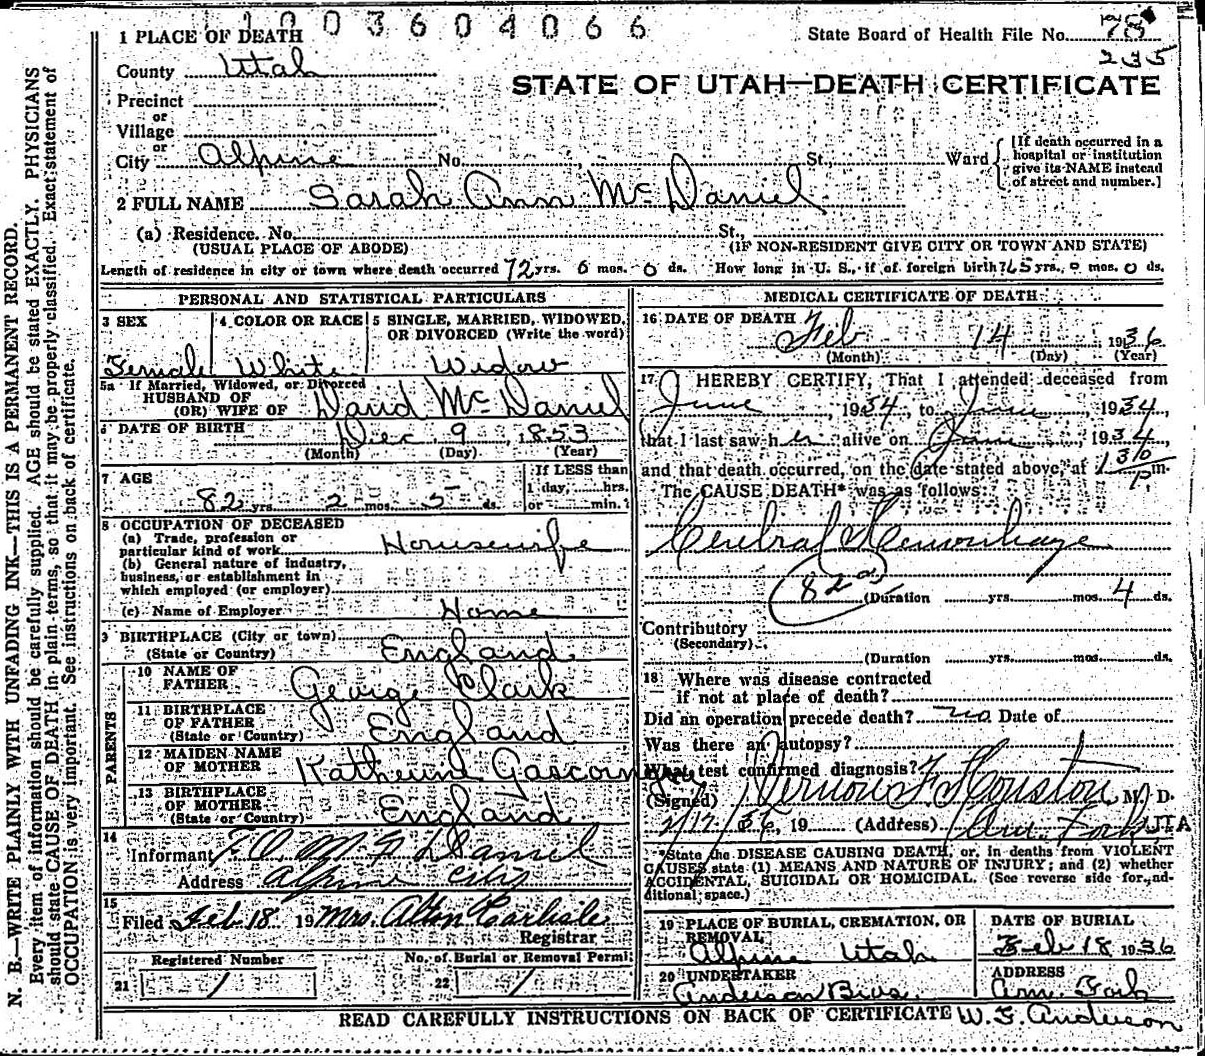 1003604066
State Board of Health File No. 78
235
1 PLACE OF DEATH
County Utah
STATE OF UTAH—DEATH CERTIFICATE
Precinct
or
Village
or
City Alpine No. St., Ward
[If death occurred in a hospital or institution give its NAME instead of street and number.]
2 FULL NAME Sarah Ann McDaniel
(a) Residence. No. St.,
(USUAL PLACE OF ABODE) (IF NON-RESIDENT GIVE CITY OR TOWN AND STATE)
Length of residence in city or town where death occurred 72 yrs. 6 mos. 0 ds. How long in U. S., if of foreign birth? yrs. 0 mos. 0 ds.
PERSONAL AND STATISTICAL PARTICULARS
3 SEX 4 COLOR OR RACE 5 SINGLE, MARRIED, WIDOWED, OR DIVORCED (Write the word)
Female White Widow
5a If Married, Widowed, or Divorced
HUSBAND OF
(OR) WIFE OF David McDaniel
6 DATE OF BIRTH Dec. 9, 1853
(Month) (Day) (Year)
7 AGE If LESS than
1 day, hrs.
82 yrs. 2 mos. 5 ds. or min.
8 OCCUPATION OF DECEASED
(a) Trade, profession or
particular kind of work Housewife
(b) General nature of industry,
business, or establishment in
which employed (or employer)
(c) Name of Employer Home
9 BIRTHPLACE (City or town)
(State or Country) England
PARENTS
10 NAME OF
FATHER George Clark
11 BIRTHPLACE
OF FATHER
(State or Country) England
12 MAIDEN NAME
OF MOTHER Katherine Gascoingne
13 BIRTHPLACE
OF MOTHER
(State or Country) England
14
Informant Mc Daniel
Address Alpine City
15
Filed Feb 18 19 Mrs. Alton Carlisle
Registrar
Registered Number No. of Burial or Removal Permit
21 1 22 1
MEDICAL CERTIFICATE OF DEATH
16 DATE OF DEATH
Feb 14 1936
(Month) (Day) (Year)
17 I HEREBY CERTIFY, That I attended deceased from
June, 1934, to June, 1934,
that I last saw her alive on June, 1934,
and that death occurred, on the date stated above, at 130 P m.
The CAUSE DEATH* was as follows:
Cerebral Hemorrhage
82a
(Duration yrs. mos. 4 ds.
Contributory
(Secondary)
(Duration yrs. mos. ds.
18 Where was disease contracted
if not at place of death?
Did an operation precede death? no Date of
Was there an autopsy?
What test confirmed diagnosis?
(Signed) Vernon F Houston M. D.
2/17/36, 19 (Address) Am. Fork UTA
*State the DISEASE CAUSING DEATH, or, in deaths from VIOLENT
CAUSES, state (1) MEANS AND NATURE OF INJURY; and (2) whether
ACCIDENTAL, SUICIDAL OR HOMICIDAL. (See reverse side for additional space.)
19 PLACE OF BURIAL, CREMATION, OR REMOVAL DATE OF BURIAL
Alpine Utah Feb 18 1936
20 UNDERTAKER ADDRESS
Anderson Bros. Am. Fork
READ CAREFULLY INSTRUCTIONS ON BACK OF CERTIFICATE W. F. Anderson
N. B.—WRITE PLAINLY WITH UNFADING INK—THIS IS A PERMANENT RECORD.
Every item of information should be carefully supplied. AGE should be stated EXACTLY. PHYSICIANS
should state CAUSE OF DEATH in plain terms, so that it may be properly classified. Exact statement of
OCCUPATION is very important. See instructions on back of certificate.